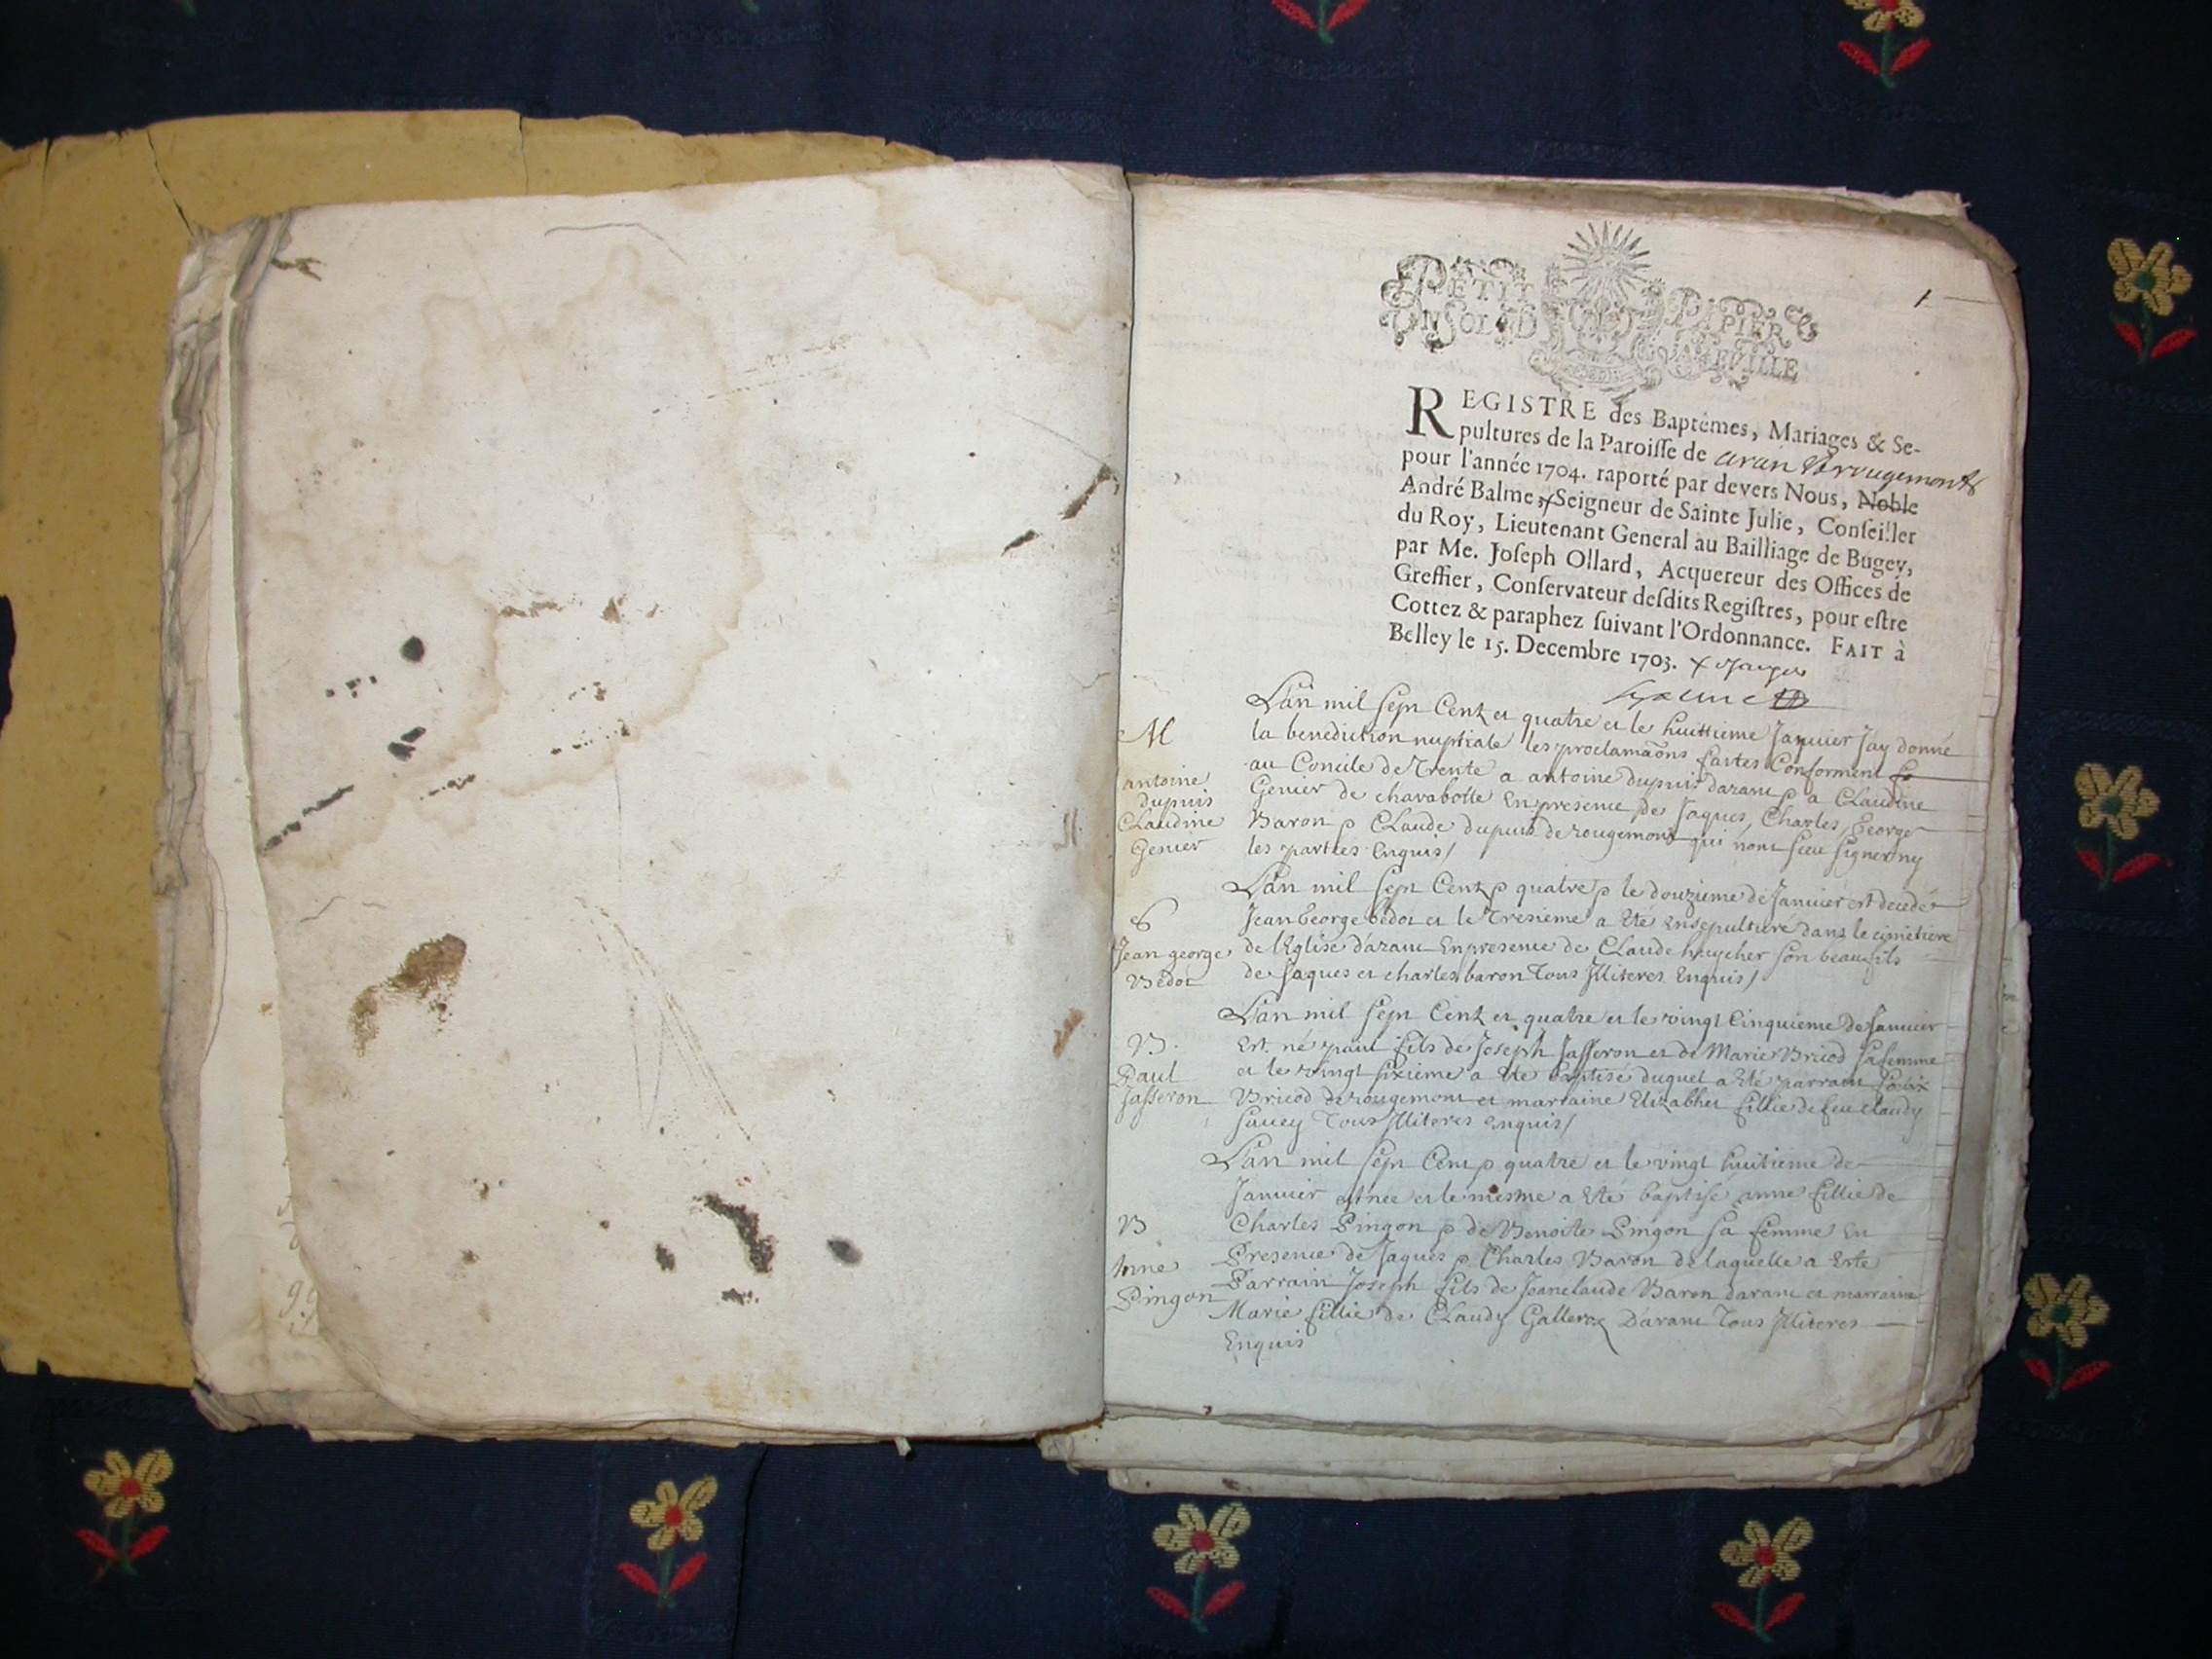 1
PETIT PAPIER
UN SOL
REGISTRE des Baptêmes, Mariages & Se-
pultures de la Paroisse de aran & rougemont
pour l'année 1704. raporté par devers Nous, Noble
André Balme, Seigneur de Sainte Julie, Conseiller
du Roy, Lieutenant General au Bailliage de Bugey,
par Me. Joseph Ollard, Acquereur des Offices de
Greffier, Conservateur desdits Registres, pour estre
Cottez & paraphez suivant l'Ordonnance. FAIT à
Belley le 15. Decembre 1703.
M
antoine
dupuis
CLaudine
Genier
Lan mil sept Centz et quatre et le huittieme Januier Jay donné
la benediction nuptiale les proclamaõns faites Conforment
au Concile de Trente a antoine dupuis daranc & a CLaudine
Genier de chavabotte en presence de Jaques, Charles, George
Baron & CLaude dupuis de rougemont qui nont sceu signer ny
les parties Enquis/
S
Jean george
Bedot
Lan mil sept Centz & quatre & le douzieme de Januier est decedé
Jean George bedot et le Tresieme a été ensepulturé dans le cimetiere
de lEglise daranc En presence de CLaude son beaufils
de Jaques et charles baron Tous Jlliteres Enquis/
B.
Paul
Jasseron
Lan mil sept Centz et quatre et le vingt Cinquieme de Januier
Est né paul fils de Joseph Jasseron et de Marie Bricod sa femme
et le vingt sixieme a ete baptisé duquel a été parrain
Bricod de rougemont et marraine Elizabhet fillie de feu claudy
Savey Tous Jlliteres enquis/
B
Anne
Pingon
Lan mil sept Cent & quatre et le vingt huitieme de
Januier est née et le mesme a été baptisé anne fillie de
Charles Pingon & de Benoite Pingon sa femme En
Presence de Jaques & Charles Baron de laquelle a Esté
Parrain Joseph fils de Jeanclaude Baron daranc et marraine
Marie fillie de CLaudy Galleroz Daranc Tous Jlliteres
Enquis